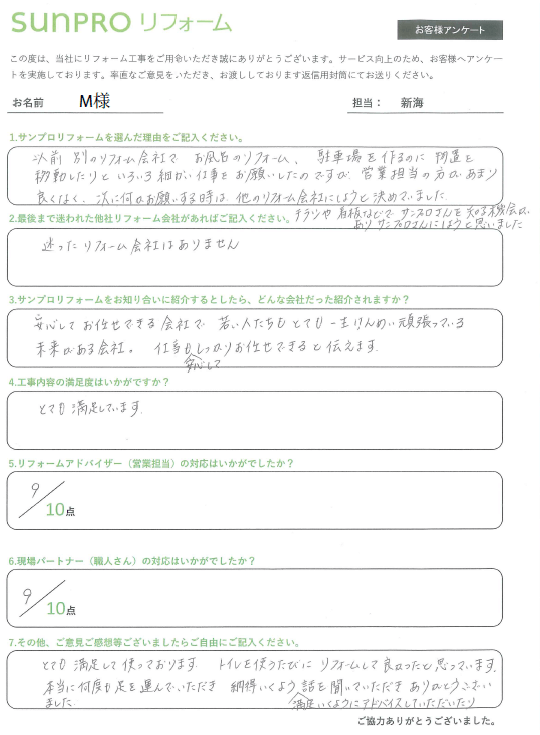 SUNPRO リフォーム
お客様アンケート
この度は、当社にリフォーム工事をご用命いただき誠にありがとうございます。サービス向上のため、お客様へアンケー
トを実施しております。率直なご意見をいただき、お渡ししております返信用封筒にてお送りください。
お名前 M様 担当： 新海
1.サンプロリフォームを選んだ理由をご記入ください。
以前 別のリフォーム会社で お風呂のリフォーム、駐車場を作るのに 物置を
移動したりと いろいろ細かい仕事を お願いしたのですが、営業担当の方が、あまり
良くなく、次に何かお願いする時は 他のリフォーム会社にしようと 決めていました。
チラシや 看板などで サンプロさんを 知る機会が
あり サンプロさんにしようと思いました
2.最後まで迷われた他社リフォーム会社があればご記入ください。
迷ったリフォーム会社はありません
3.サンプロリフォームをお知り合いに紹介するとしたら、どんな会社だった紹介されますか？
安心して お任せできる 会社で 若い人たちも とても 一生けんめい 頑張っている
未来がある会社。 仕事も しっかり 安心して お任せできると 伝えます。
4.工事内容の満足度はいかがですか？
とても 満足しています。
5.リフォームアドバイザー（営業担当）の対応はいかがでしたか？
9／10点
6.現場パートナー（職人さん）の対応はいかがでしたか？
9／10点
7.その他、ご意見ご感想等ございましたらご自由にご記入ください。
とても 満足して 使っております。 トイレを使うたびに リフォームして 良かったと 思っています。
本当に何度も足を運んでいただき 納得いくよう 話を 聞いていただき ありがとうござい
ました。 満足いくようにアドバイスしていただいたり
ご協力ありがとうございました。